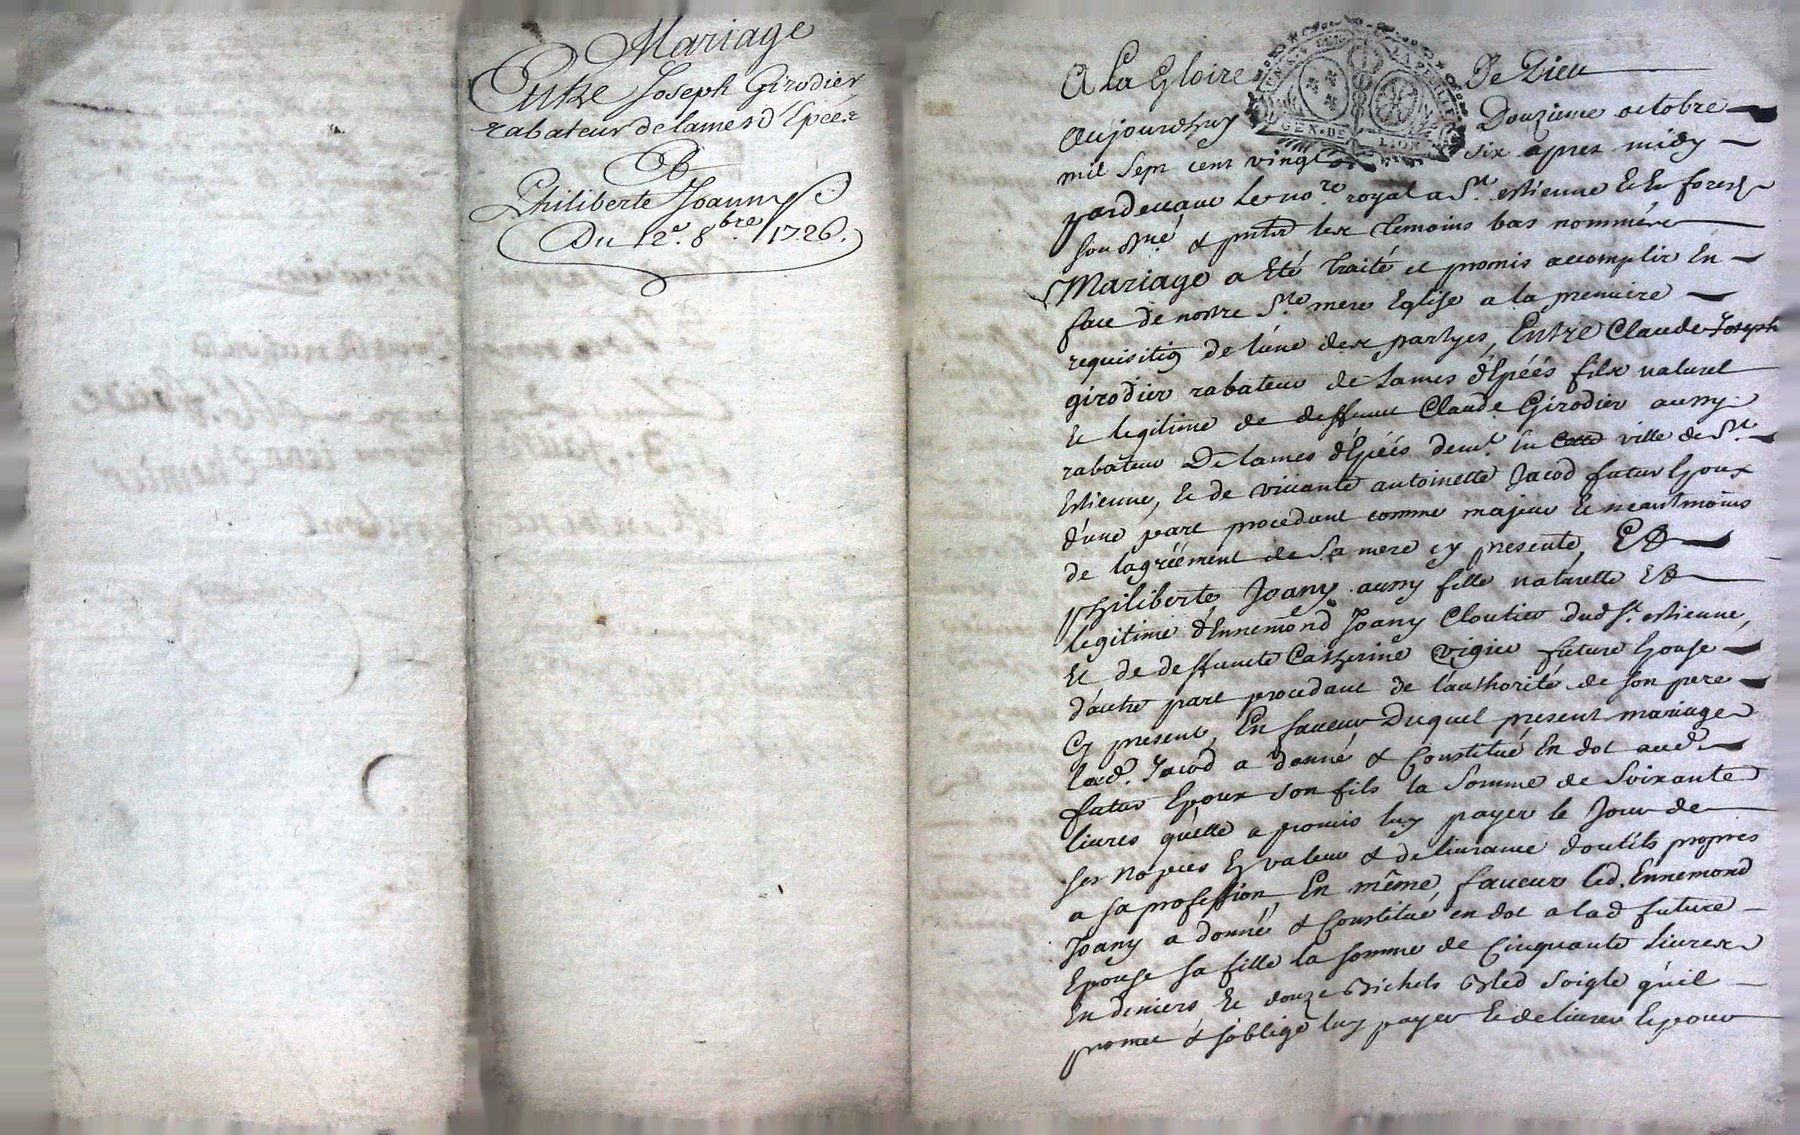 Mariage
Entre Joseph Girodier
rabateur de lames d'Epéés
Et
Philiberte Joanny
Du 12e. 8bre. 1726.
A La Gloire De Dieu
Aujourdhuy Douzieme octobre
mil sept cent vingt six apres midy
pardevant le nore. royal a St. estienne Et En forest
sousné & pnts les temoins bas nommés
Mariage a Eté traité et promis accomplir En
face de nostre Ste mere Eglise a la premiere
requisition de l'une des partyes, Entre Claude Joseph
girodier rabateur de lames d'Epéés fils naturel
Et legitime de deffunt Claude Girodier aussy
rabateur De lames d'Epéés demt. En ville de St.
Estienne, Et de vivante antoinette Jacod futur Epoux
d'une part procedant comme majeur Et neantmoins
de lagréement de Sa mere cy presente, Et
Philiberte Joany aussy fille naturelle Et
legitime d'Ennemond Joany Cloutier dud St. estienne,
Et de deffuncte Catherine vigier future Epouse
d'autre part procedant de l'authorité de son pere
Cy present, En faveur Duquel present mariage
lad. Jacod a donné & Constitué En dot aud.
futur Epoux son fils la Somme de Soixante
livres qu'elle a promis luy payer le Jour de
ses nopces En valeur & delivrance d'outils propres
a sa profession, En même faveur led. Ennemond
Joany a donné & Constitué en dot a lad future
Epouse sa fille la somme de Cinquante Livres
En deniers Et douze Bichets Bled Soigle qu'il
promet & s'oblige luy payer Et delivrer Et pour
GEN. DE LION